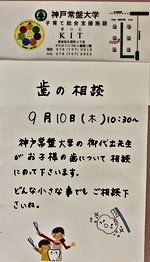 神戸常盤大学
子育て総合支援施設
KIT
歯の相談
9月10日(木)10:30〜
神戸常盤大学の御代出先生
がお子様の歯について相談
にのって下さいます。
どんな小さな事でもご相談下
さいね。